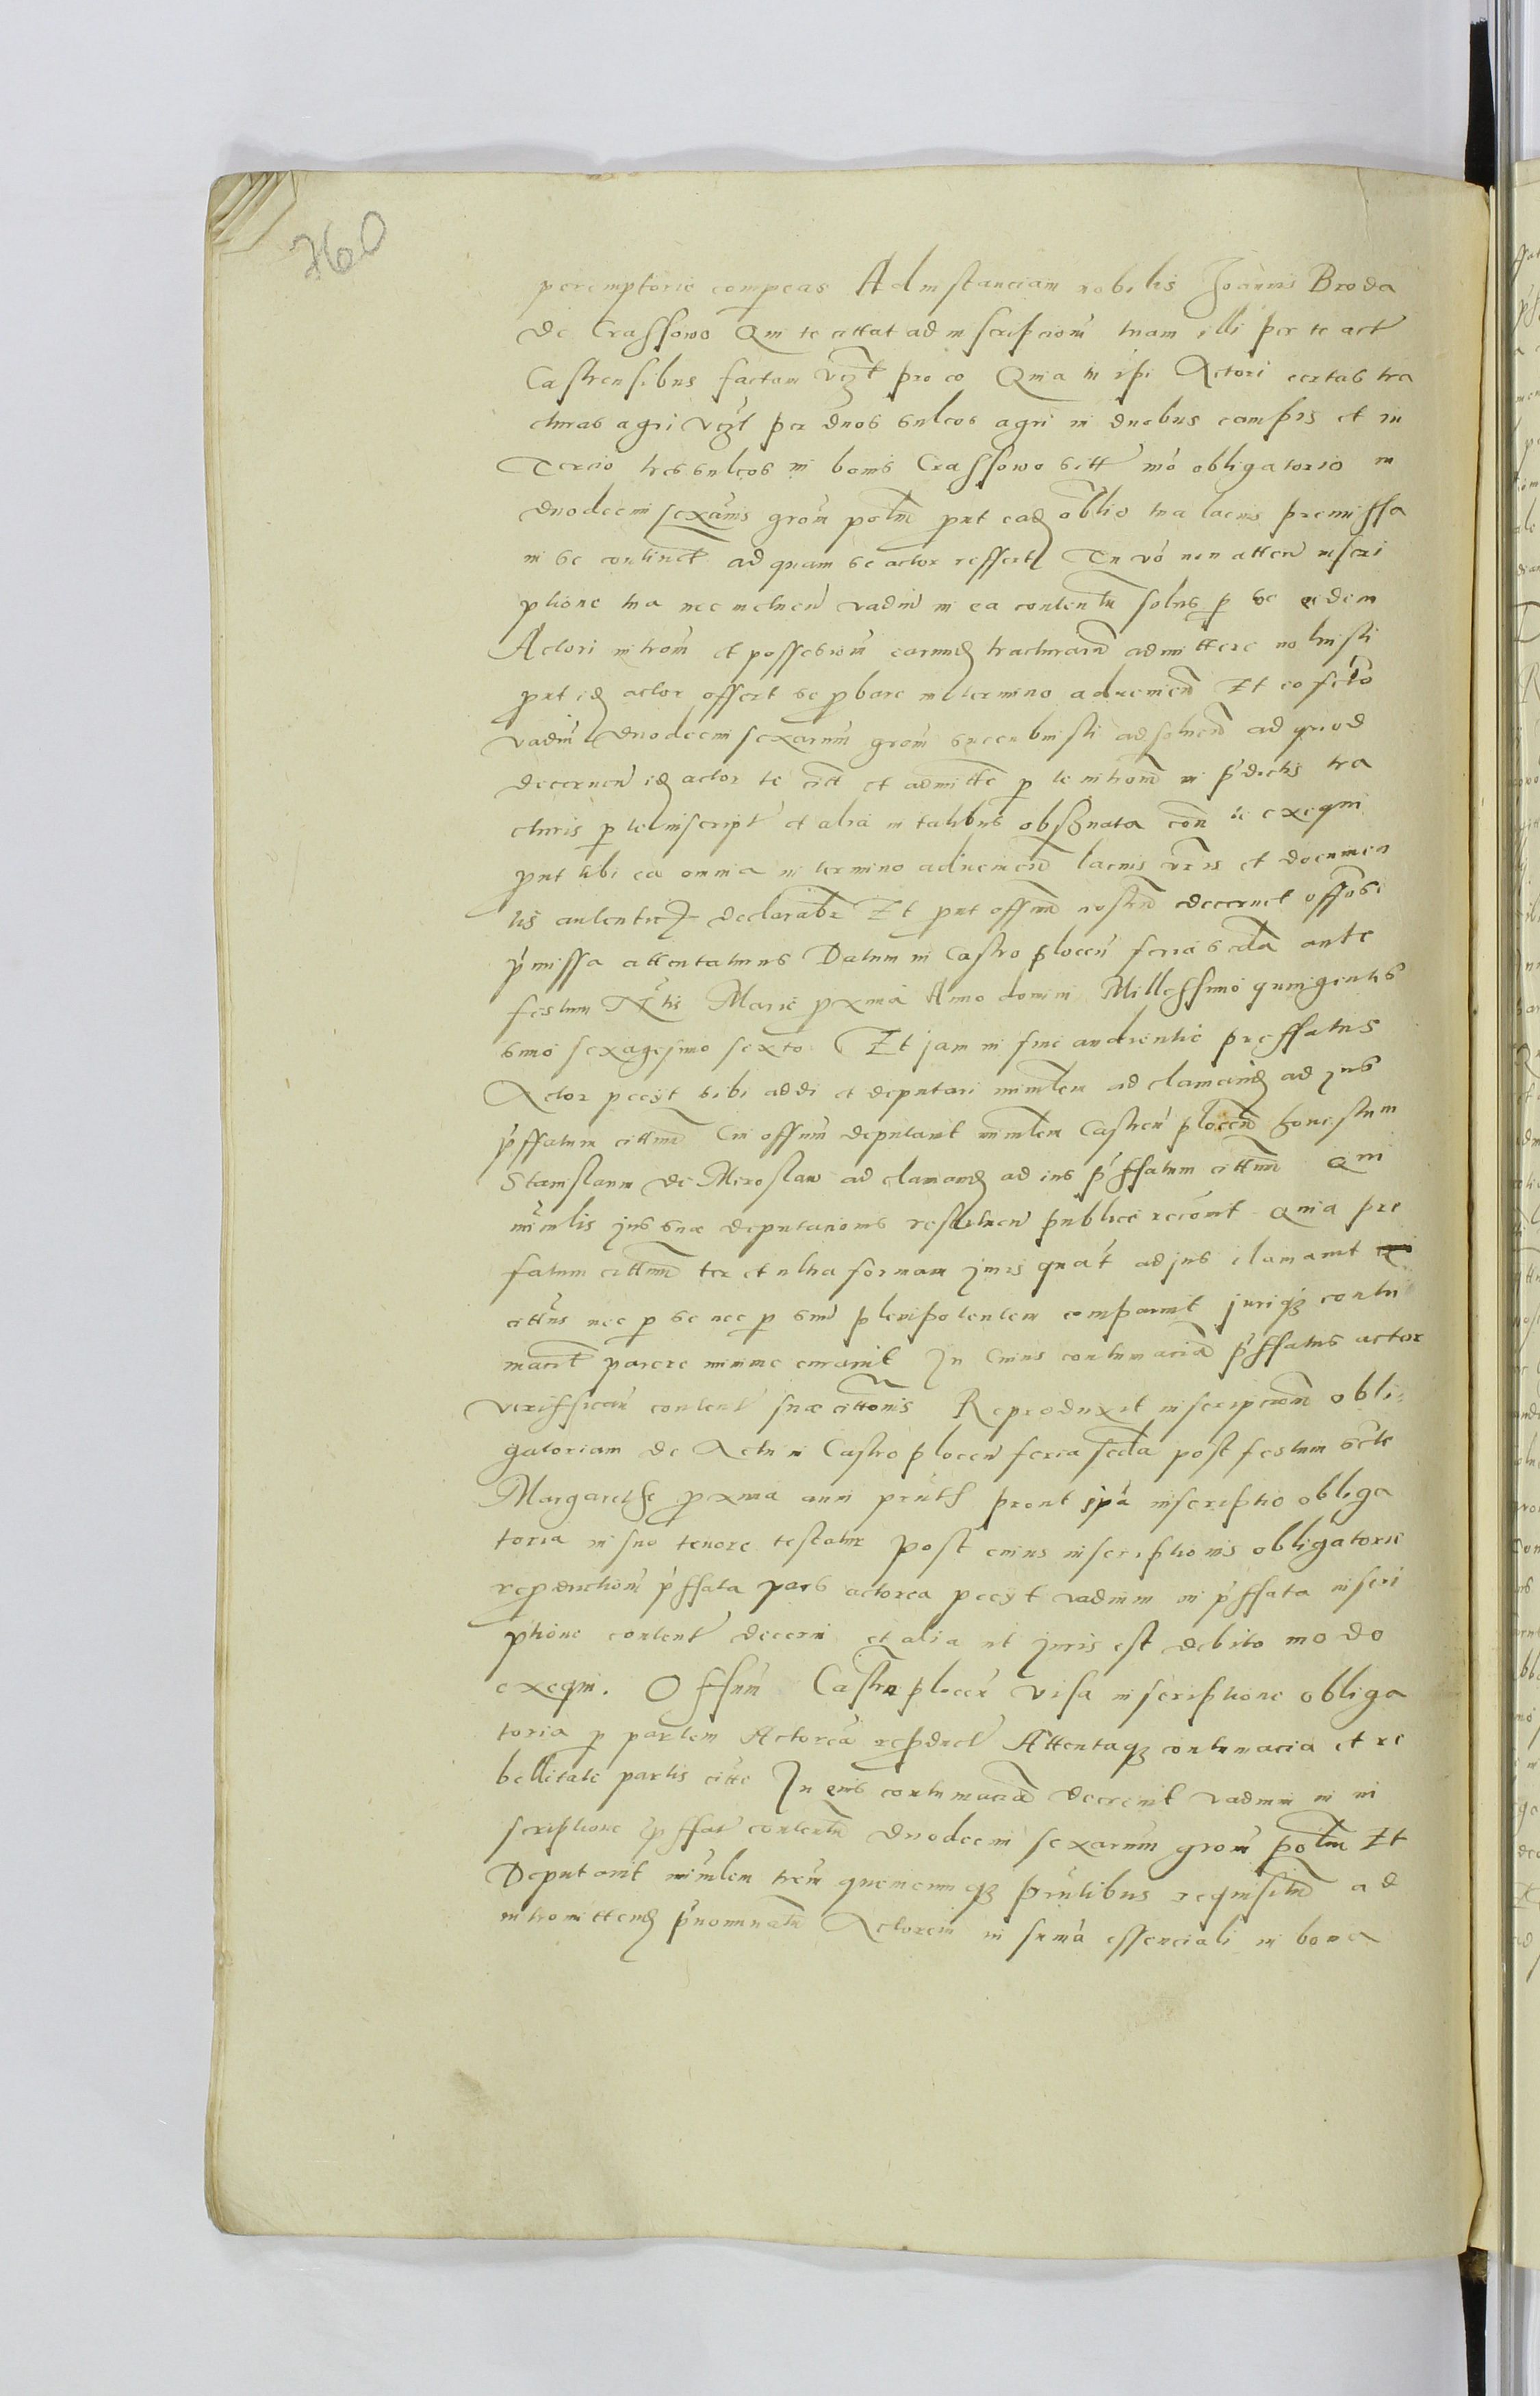 760
peremptorie compeas Ad instanciam nobilis Joannis Broda
de Crassowo Qui te cittat ad inscripcionem tuam illi per te act
Castrensibus factam vczt pro eo Quia tu ipsi Actori certas tra
cturas agri vczt per duos sulcos agri in duobus campis et in
Tercio tres sulcos in bonis Crassowo sitt mo obligatorio in
duodecim sexanis grom polm put eadz oblio tua lacius premissa
in se continet ad quam se actor reffert Tu vo non atten inscri
ptione tua nec metuen vadiu in ea contentu solus p se eidem
Actori introm et possessiom earundz tracturaru admittere noluisti
put idz actor offert se pbare in termino adueniend Et eo fcto
vadiu duodecim sexarum grom succubuisti ad soluend ad quod
decernen idz actor te citt et admitte p te introm in pdictis tra
cturis p te inscript et alia in talibus obseruata con te exequi
put tibi ea omnia in termino adueniend lacius vris et documen
tis autentic declarabr Et put offm nostru decernet offsi
pmissa attentaturus Datum in Castro plocen feria scda ante
festum Ntis Marie pxma Anno domini Millessimo quingentes
simo sexagesimo sexto Et jam in fine audientie preffatus
Actor pecyt sibi addi et deputari minlem ad clamandz ad jus
pffatum cittum Cui offm deputauit minlem Castren plocen honestum
Stanislaum de Miroslaw ad clamandz ad ius pffatum cittum Qui
minlis jus suae deputationis restituen publice recōuit quia pre
fatum cittum ter et ultra formam juris quat ad jus clamauit
cittus nec p se nec p suu plenipotentem comparuit juriqz contu
macit parere minime curauit In Cuius contumacia pffatus actor
veriffican content suae cittonis Reproduxit inscripciom obli
gatoriam de Actu in Castro plocen feria scda post festum scte
Margarethe pxma anni pntis prout ipa inscriptio obliga
toria in suo tenore testatur post cuius inscriptionis obligatorie
repductiom pffata pars actorea pecyt vadium in pffata inscri
ptione content decerni et alia ut juris est debito modo
exequi. Offm Castren plocen visa inscriptione obliga
toria p partem Actorea repduct Attentaqz contumacia et re
bellitate partis citte In eius contumacia decreuit vadium in in
scriptione pffat contentu duodecim sexarum grom polm Et
Deputauit minlem trem quemcumqz pntibus requisitu ad
intromittendz pnominatu Actorem in suma essenciali in bona